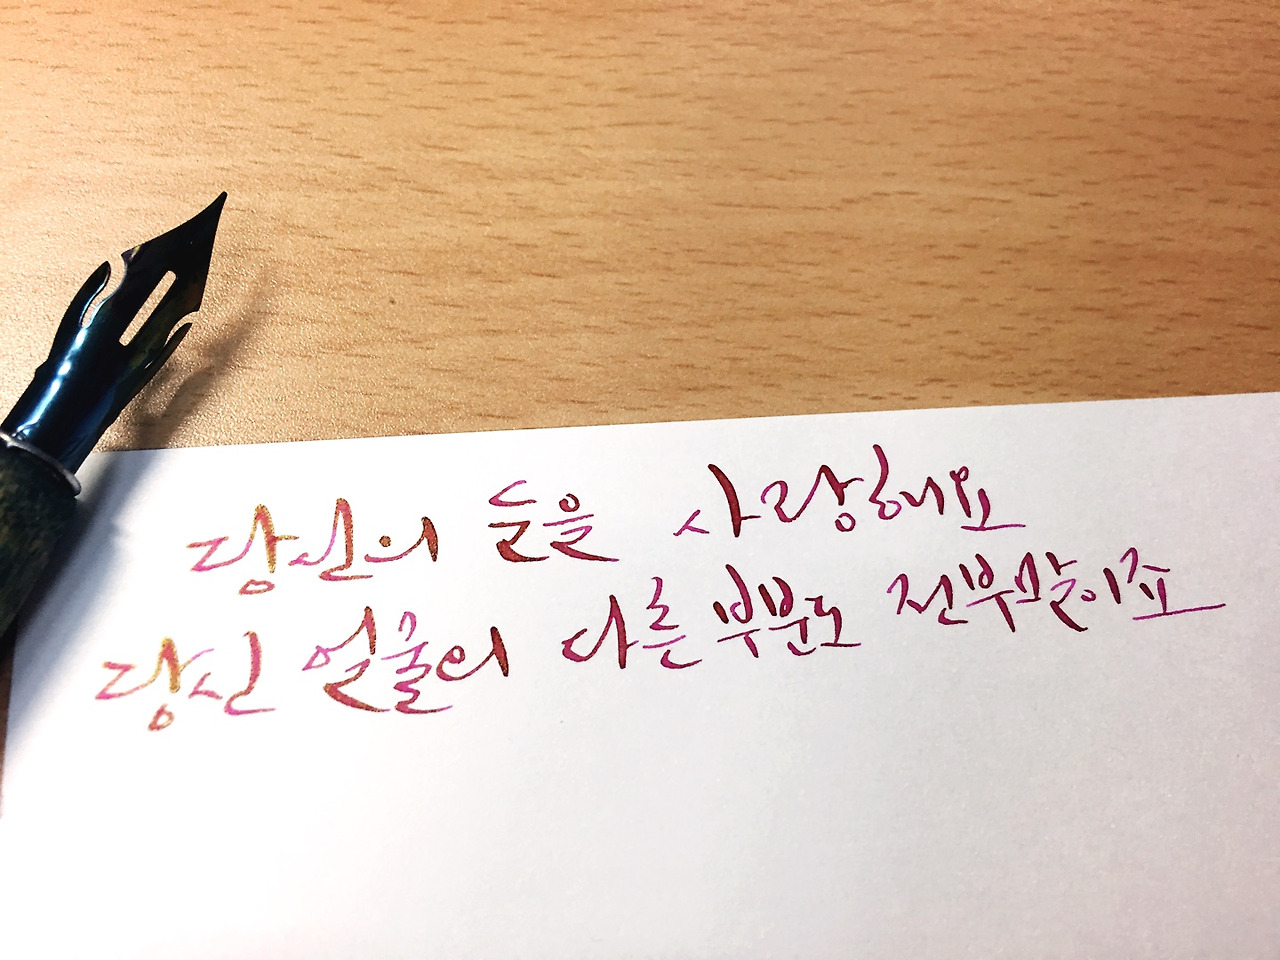 당신의 눈을 사랑해요
당신 얼굴의 다른 부분도 전부말이죠